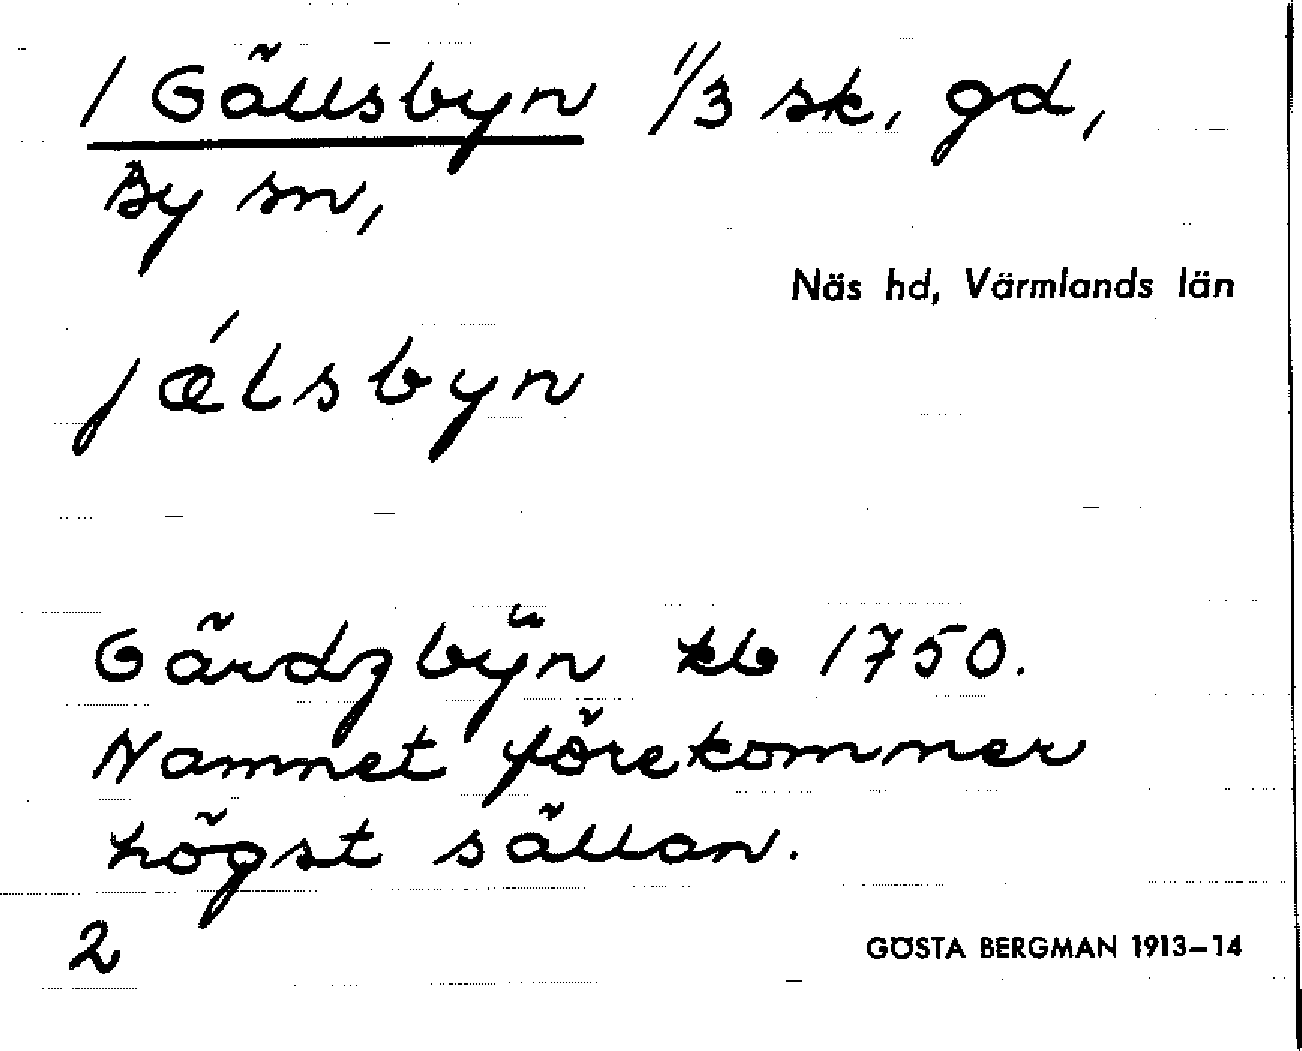 1 Gällsbyn 1/3 sk, gd,
By sn,
Näs hd, Värmlands län
jǽlsbyn
Gärdzbÿn kb 1750.
Namnet förekommer
högst sällan.
2
GÖSTA BERGMAN 1913–14